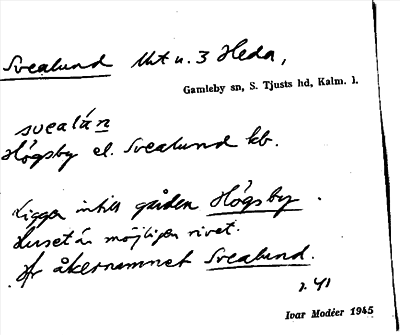 Svealund Utt u. 3 Heda,
Gamleby sn, S. Tjusts hd, Kalm. l.
svealán
Högsby el. Svealund kb.
Ligger intill gården Högsby.
Huset är möjligen rivet.
Är åkernamnet Svealund.
s. 41
Ivar Modéer 1945